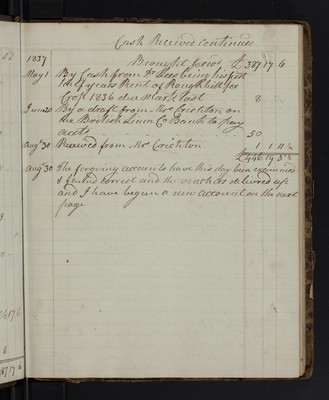 Cash Received Continued
1837
Brought forwd £ 387 17 6
May 1 By Cash from Jas Lees being his first
half years Rent of Roughhill for
Crop 1836 due Mart. last 8
June 20 By a draft from Mr Crichton on
the British Linen Co Bank to pay
accts 50
Augt 30 Received from Mr Crichton 1 1 11 ½
£446 19 5 ½
Augt 30 The forgoing accounts have this day been examined
& found correct and the vouchers delivered up
and I have begun a new account on the next
page